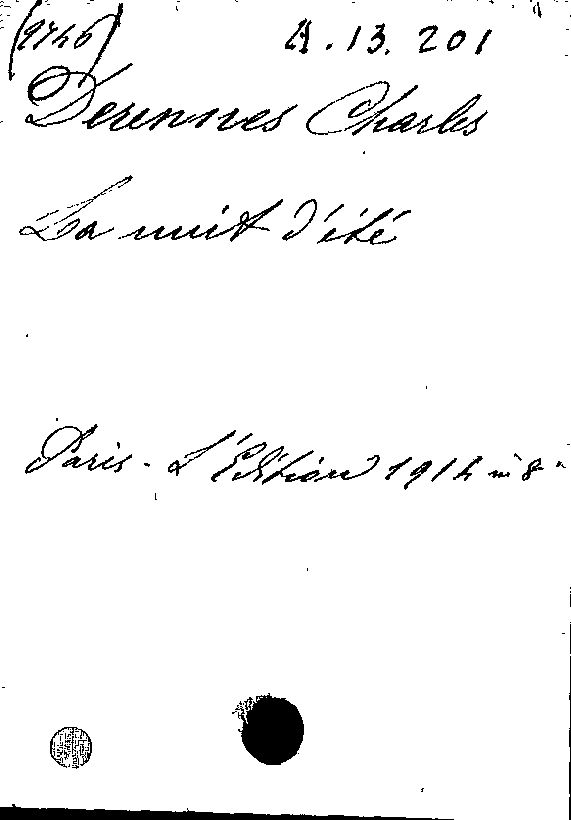 (9746) A.13.201
Derennes Charles
La nuit d'été
Paris - L'Édition 1914 in 8°